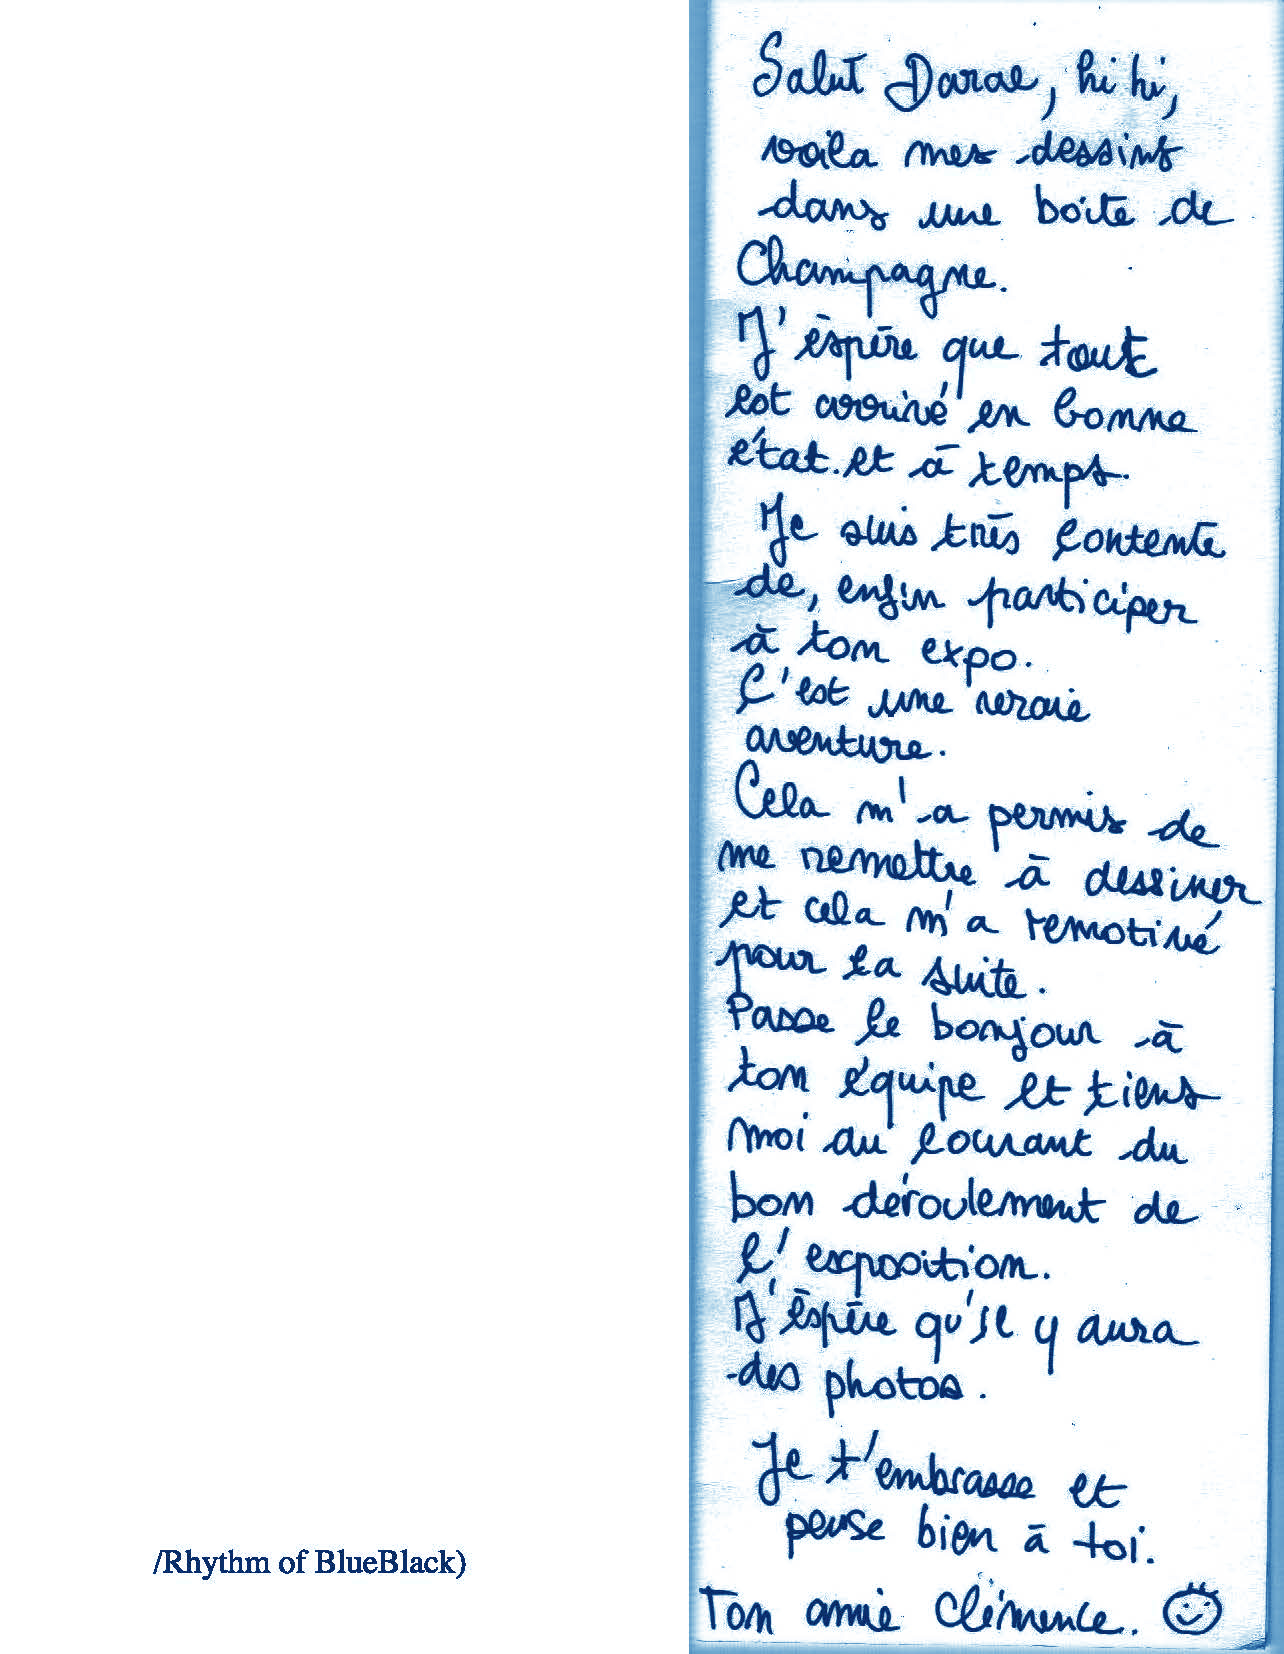 Salut Darae, hi hi,
voila mes dessins
dans une boite de
Champagne.
J'èspère que tout
est arrivé en bonne
état. et à temps.
Je suis très contente
de, enfin participer
à ton expo.
C'est une vraie
aventure.
Cela m'a permis de
me remettre à dessiner
et cela m'a remotivé
pour la suite.
Passe le bonjour à
ton équipe et tiens
moi au courant du
bon déroulement de
l'exposition.
J'èspère qu'il y aura
des photos.
Je t'embrasse et
pense bien à toi.
Ton amie Clémence.
/Rhythm of BlueBlack)